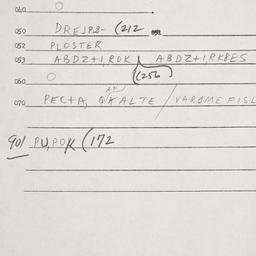 040
050 DREJPS- (212
052 PLOSTER
053 ABDZ+1,ROK ABDZ+1,RKBES
(256
060
070 PECTA, ALTE / VAROME FISL
901 PU,POK (172